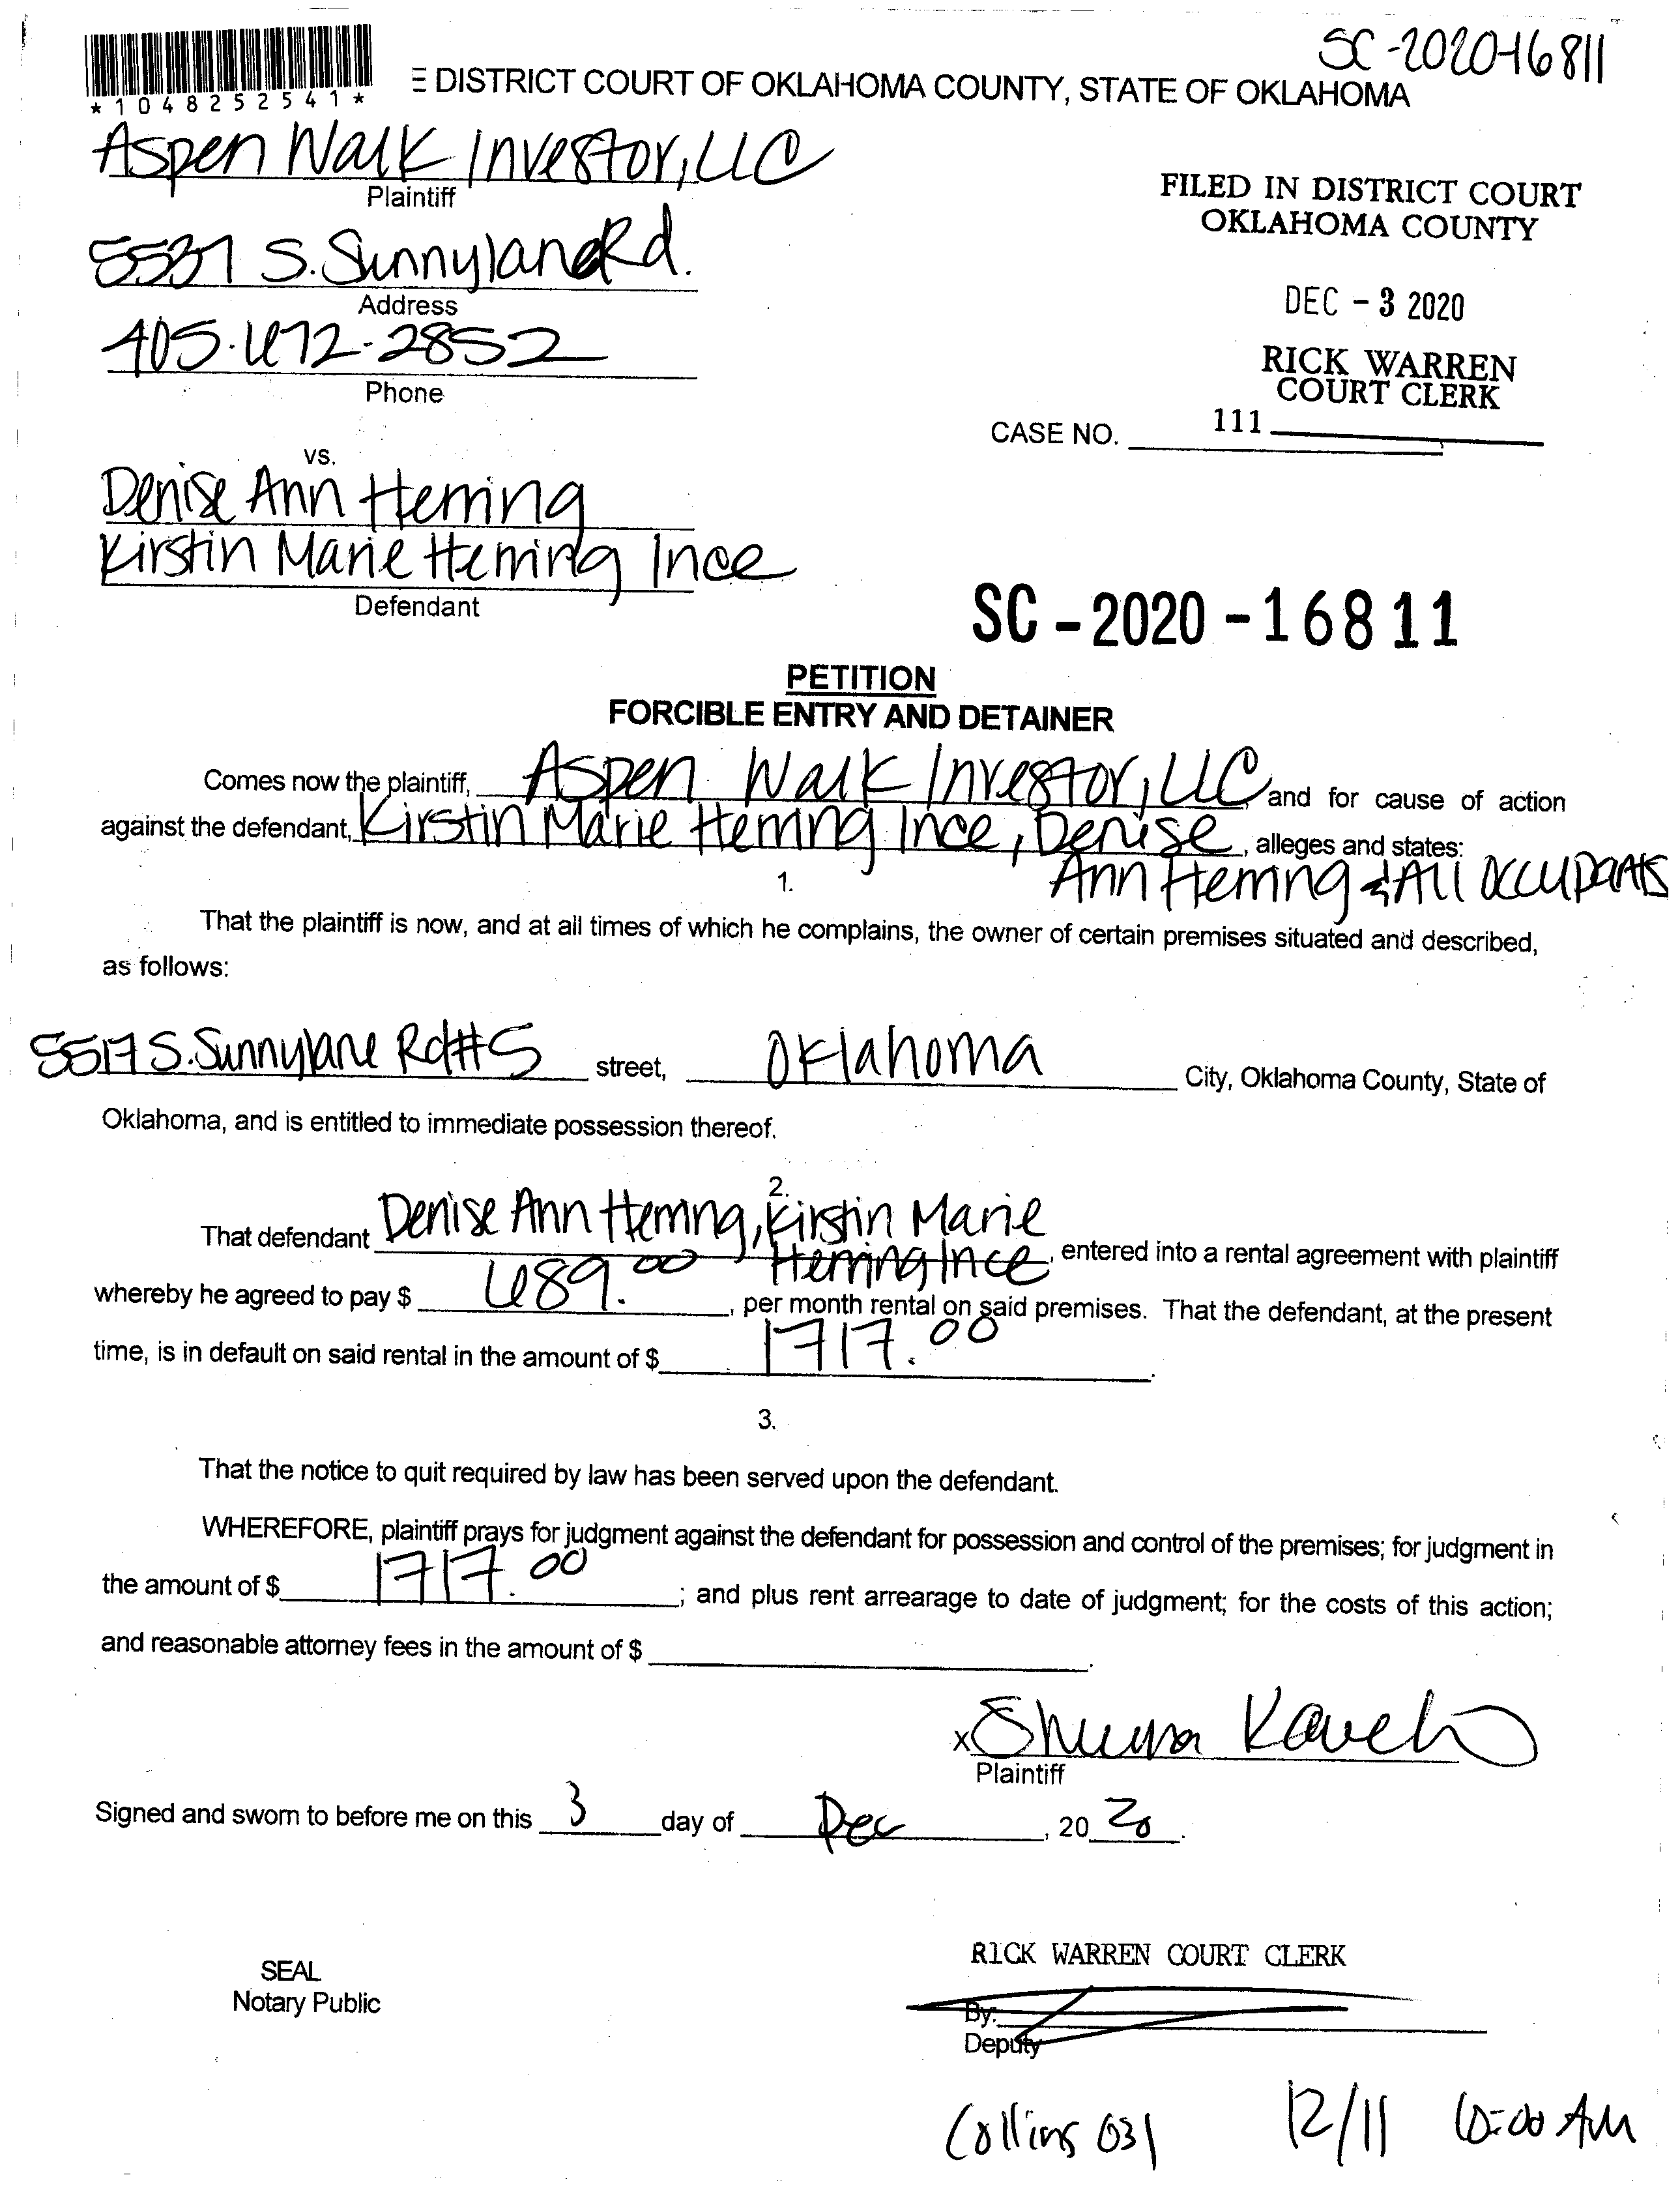 SC-2020-16811
*1048252541*
E DISTRICT COURT OF OKLAHOMA COUNTY, STATE OF OKLAHOMA
Aspen Walk Investor, LLC
Plaintiff
FILED IN DISTRICT COURT
OKLAHOMA COUNTY
5537 S. Sunnylane Rd.
Address
DEC - 3 2020
405-672-2852
Phone
RICK WARREN
COURT CLERK
CASE NO. 111
vs.
Denise Ann Herring
Kirstin Marie Herring Ince
Defendant
SC - 2020 - 16811
PETITION
FORCIBLE ENTRY AND DETAINER
Comes now the plaintiff, Aspen Walk Investor, LLC and for cause of action
against the defendant, Kirstin Marie Herring Ince, Denise, alleges and states:
Ann Herring & All occupants
1.
That the plaintiff is now, and at all times of which he complains, the owner of certain premises situated and described,
as follows:
5517 S. Sunnylane Rd #5 street, Oklahoma City, Oklahoma County, State of
Oklahoma, and is entitled to immediate possession thereof.
2.
That defendant Denise Ann Herring, Kirstin Marie
Herring Ince, entered into a rental agreement with plaintiff
whereby he agreed to pay $ 689.00, per month rental on said premises. That the defendant, at the present
time, is in default on said rental in the amount of $ 1717.00.
3.
That the notice to quit required by law has been served upon the defendant.
WHEREFORE, plaintiff prays for judgment against the defendant for possession and control of the premises; for judgment in
the amount of $ 1717.00; and plus rent arrearage to date of judgment; for the costs of this action;
and reasonable attorney fees in the amount of $ .
x
Plaintiff
Signed and sworn to before me on this 3 day of Dec, 20 20.
SEAL
Notary Public
RICK WARREN COURT CLERK
By:
Deputy
Collins 031 12/11 10:00 AM